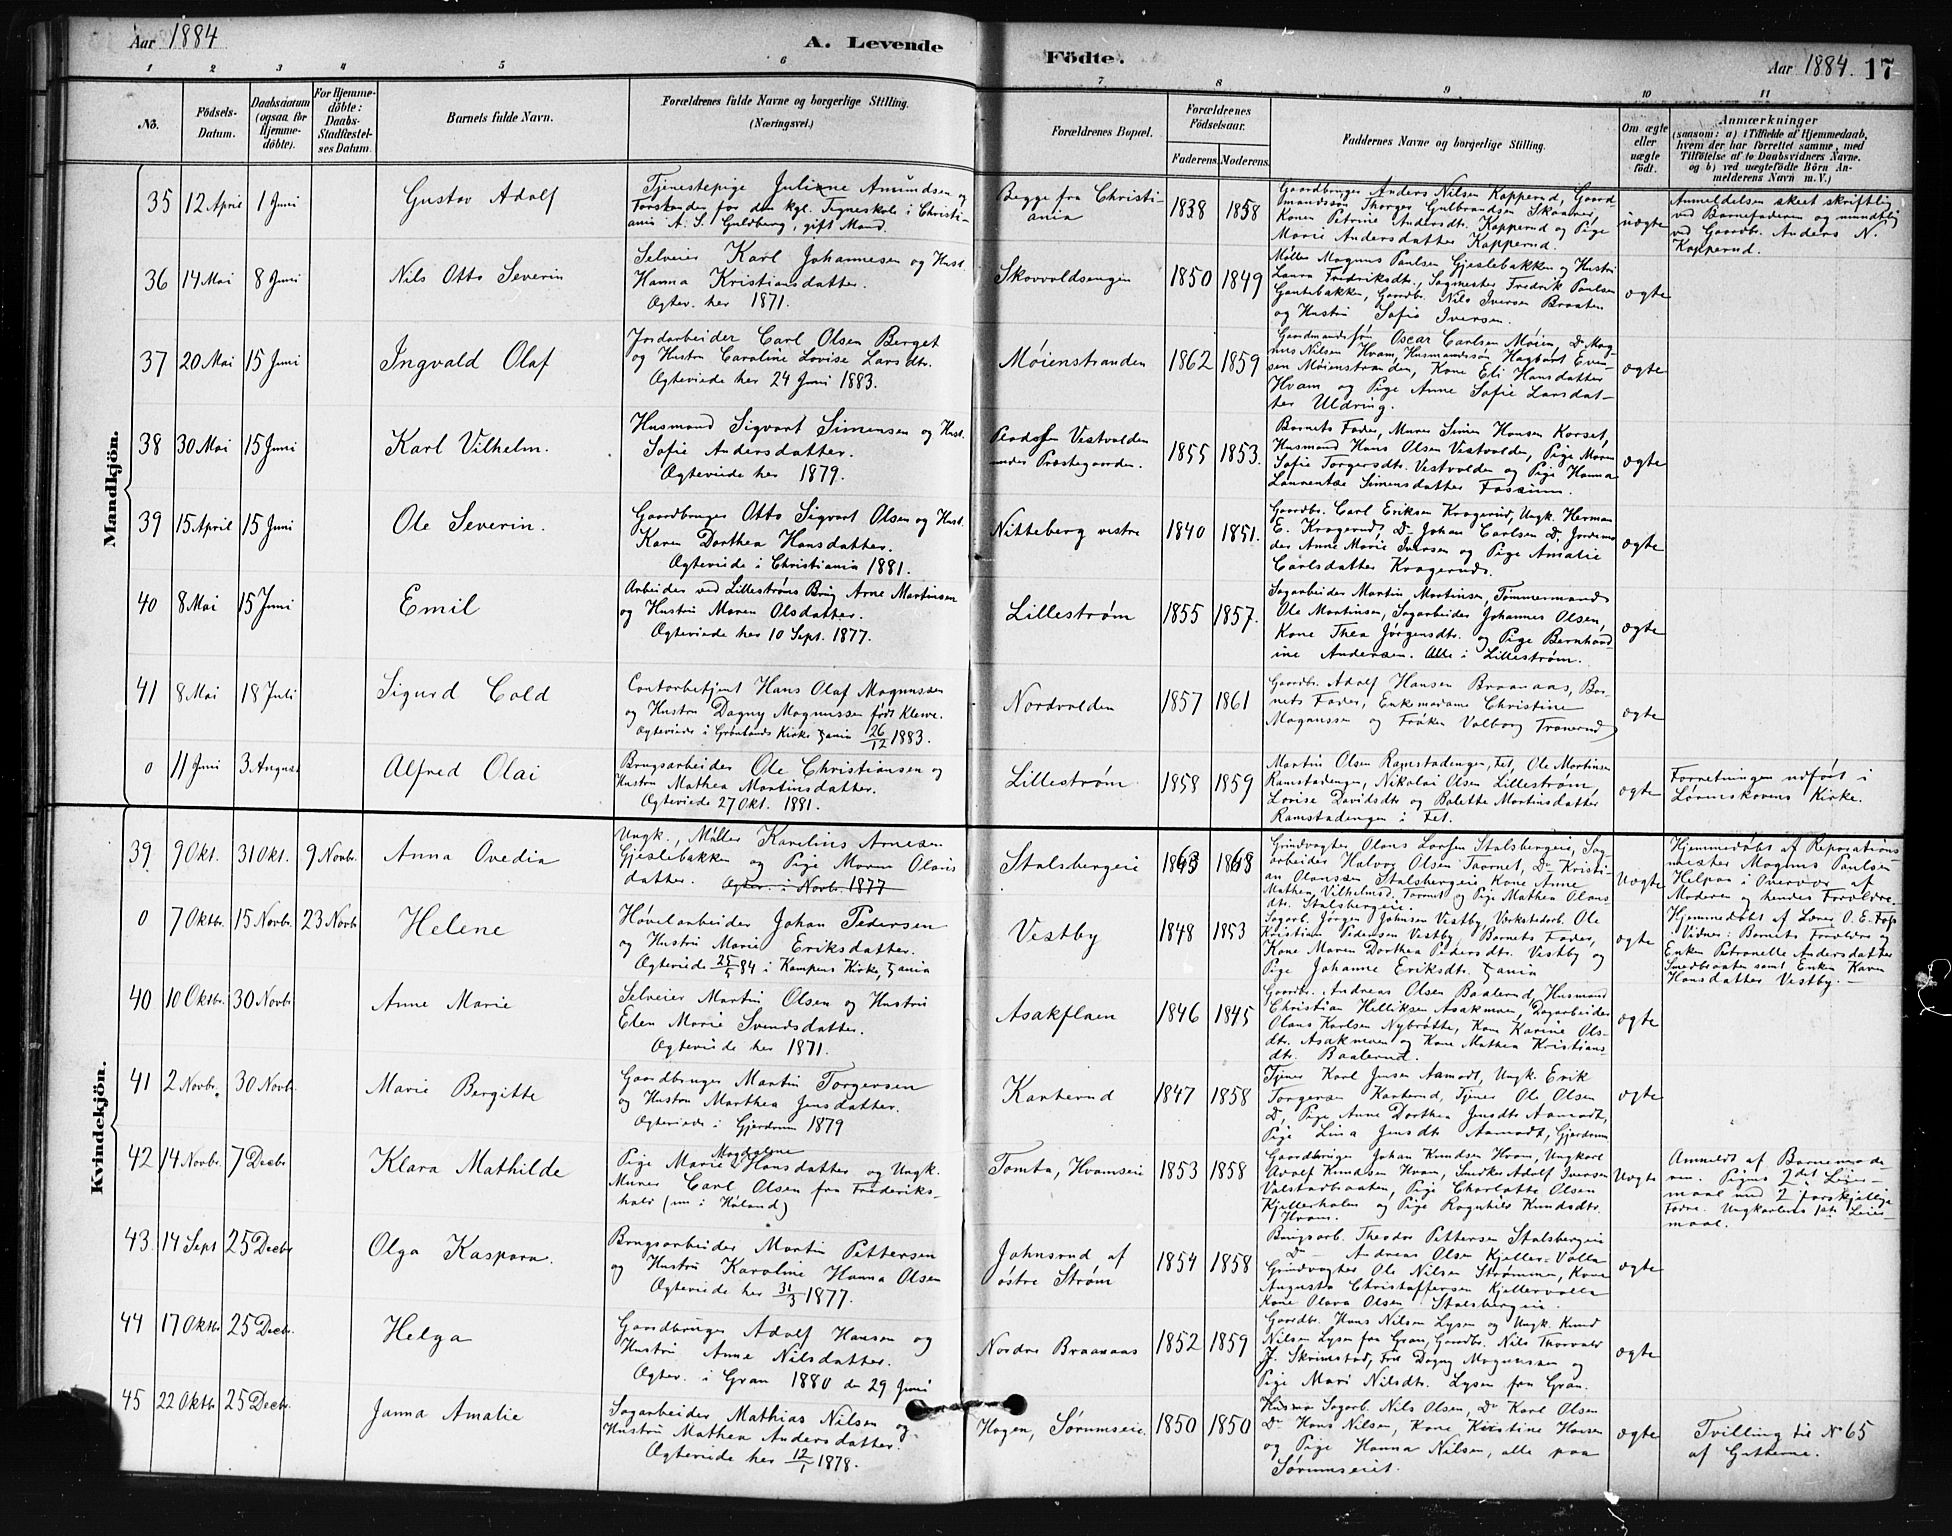 Aar 1884
A. Levende
Födte.
Aar 1884. 17
1 2 3 4 5 6 7 8 9 10 11
No.
Födsels-
Datum.
Daabsdatum
(ogsaa for
Hjemme-
döbte).
For Hjemme-
döbte:
Daabs-
Stadfæstel-
ses Datum.
Barnets fulde Navn.
Forældrenes fulde Navne og borgerlige Stilling.
(Næringsvei.)
Forældrenes Bopæl.
Forældrenes
Födselsaar.
Faderens. Moderens.
Faddernes Navne og borgerlige Stilling.
Om ægte
eller
uægte
födt.
Anmærkninger
(saasom: a) i Tilfælde af Hjemmedaab,
hvem der har forrettet samme, med
Tilføielse af to Daabsvidners Navne,
og b) ved uægtefødte Børn An-
melderens Navn m. V.)
Mandkjön.
35 12 April 1 Juni
Gustav Adolf
Tjenestepige Juliane Amundsen og
Forstander for den kgl. Tegneskole i Christi-
ania A. S. Guldberg, gift Mand.
Begge fra Christi-
ania
1838 1858
Gaardbruger Anders Nilsen Kopperud, Gaard
mandssøn Thorger Gulbrandsen Skaarer,
Kone Petrine Andersdt. Kopperud og Pige
Marie Andersdatter Kopperud.
uægte
Anmeldelsen skeet skriftlig
ved Barnefaderen og mundtlig
ved Gaardb. Anders N.
Kopperud.
36 14 Mai 8 Juni
Nils Otto Severin
Selveier Karl Johannesen og Hust.
Hanna Kristiansdatter.
Ægtev. her 1871.
Skovvoldsengen
1850 1849
Møller Magnus Paulsen Gjeslebakken og Hustru
Laura Fredriksdt., Sagmester Fredrik Paulsen
Gautebakken, Gaardb. Nils Iversen Braaten
og Hustru Sofie Iversen.
ægte
37 20 Mai 15 Juni
Ingvald Olaf
Jordarbeider Carl Olsen Berget
og Hustru Caroline Lovise Larsdtr.
Ægteviede her 24 Juni 1883.
Møienstranden
1862 1859
Gaardmandssøn Oscar Carlsen Møien, Do Mag-
nus Nilsen Hvam, Husmandssøn Hagbart Even-
sen Møienstranden, Kone Eli Hansdatter
Hvam og Pige Anne Sofie Larsdat-
ter Uldring.
ægte
38 30 Mai 15 Juni
Karl Vilhelm.
Husmand Sigvart Simensen og Hust.
Sofie Andersdatter.
Ægteviede her 1879.
Pladsen Vestvolden
under Præstegaarden.
1855 1853.
Barnets Fader, Murer Simen Hansen Korset,
Husmand Hans Olsen Vestvolden, Pige Maren
Sofie Torgersdtr. Vestvolden og Pige Hanna
Laurentse Simensdatter Fossum.
ægte
39 15 April 15 Juni
Ole Severin.
Gaardbruger Otto Sigvart Olsen og Hust.
Karen Dorthea Hansdatter.
Ægteviede i Christiania 1881.
Nitteberg vestre
1840 1851.
Gaardbr. Carl Eriksen Kragerud, Ungk. Herman
E. Kragerud, Do Johan Carlsen Do, Jordemo-
der Anne Marie Iversen og Pige Amalie
Carlsdatter Kragerud.
ægte
40 8 Mai 15 Juni
Emil
Arbeider ved Lillestrøms Brug Arne Martinsen
og Hustru Maren Olsdatter.
Ægteviede her 10 Sept. 1877.
Lillestrøm
1855 1857.
Sagarbeider Martin Martinsen, Tømmermand
Ole Martinsen, Sagarbeider Johannes Olsen,
Kone Thea Jørgensdt. og Pige Bernhard-
ine Andersen. Alle i Lillestrøm.
ægte
41 8 Mai 18 Juli
Sigurd Cold
Contorbetjent Hans Olaf Magnussen
og Hustru Dagny Magnussen født Klewe.
Ægteviede i Grønlands Kirke Xania 26/12 1883.
Nordvolden
1857 1861
Gaardbr. Adolf Hansen Braanaas, Bar-
nets Fader, Enkemadame Christine
Magnussen og Frøken Valborg Tranerud
ægte
0 11 Juni 3 August
Alfred Olai
Brugsarbeider Ole Christiansen og
Hustru Mathea Martinsdatter.
Ægteviede 27 Okt. 1881.
Lillestrøm
1858 1859
Martin Olsen Ramstadengen, Fet, Ole Martinsen
Ramstadengen, Nikolai Olsen Lillestrøm,
Lovise Davidsdtr og Bolette Martinsdatter
Ramstadengen i Fet.
ægte
Forretningen udført i
Lørenskovens Kirke.
Kvindekjön.
39. 9 Okt. 31 Okt. 9 Novbr.
Anna Ovedia
Ungk., Møller Karelius Arnesen
Gjeslebakken og Pige Maren Olavis
datter. Ægtev. i Novbr. 1877
Stalsbergeie
1863 1868
Grindvogter Olaus Larsen Stalsbergeie, Sag
arbeider Halvor Olsen Tærnet, Do Kristi-
an Olaussen Stalsbergeie, Kone Anne
Mathea Vilhelmsd. Tærnet og Pige Mathea Olaus
dt. Stalsbergeie.
Uægte
Hjemmedøbt af Reparations
mester Magnus Paulsen
Helpaa i Overvær af
Moderen og hendes Forældre.
0 7 Oktbr. 15 Novbr. 23 Novbr
Helene
Høvelarbeider Johan Pedersen
og Hustru Marie Eriksdatter.
Ægteviede 25/5 84 i Kampens Kirke, Xania
Vestby
1848 1853
Sagarb. Jørgen Johnsen Vestby, Verkstedarb. Ole
Kristian Pedersen Vestby, Barnets Fader,
Kone Maren Dorthea Pedersdt. Vestby og
Pige Johanne Eriksdt. Xania
ægte
Hjemmedøbt af Lærer O. E. Foss
Vidner: Barnets Forældre og
Enken Petronelle Andersdatter
Smedbraaten samt Enken Karen
Hansdatter Vestby. –
40 10 Oktbr. 30 Novbr
Anne Marie
Selveier Martin Olsen og Hustru
Elen Marie Svendsdatter.
Ægteviede her 1871.
Asakflaen
1846 1845
Gaardbr. Andreas Olsen Baalerud, Husmand
Christian Helliksen Asakmoen, Dagarbeider
Olaus Karlsen Nybrøtte, Kone Karine Ols-
dt. Asakmoen og Kone Mathea Kristians-
dt. Baalerud.
ægte
41 2 Novbr. 30 Novbr.
Marie Bergitte
Gaardbruger Martin Torgersen
og Hustru Marthea Jensdatter.
Ægteviede i Gjerdrum 1879
Karterud
1847 1858
Tjener Karl Jensen Aamodt, Ungk. Erik
Torgersen Karterud, Tjener Ole Olsen
Do, Pige Anne Dorthea Jensdt. Aamodt,
Pige Lina Jensdt. Aamodt, Gjerdrum
ægte
42 14 Novbr. 7 Decbr
Klara Mathilde
Magdalene
Pige Marie Hansdatter og Ungk.
Murer Carl Olsen fra Frederiks-
hald (nu i Høland)
Tomta, Hvamseie
1853 1858
Gaardbruger Johan Knudsen Hvam, Ungkarl
Adolf Knudsen Hvam, Smed Adolf Iversen
Valstadbraaten, Pige Charlotte Olsen
Kjellerholen og Pige Ragnhild Knudsdtr.
Hvam.
Uægte
Anmeldt af Barnemode-
ren. Pigens 2det Leier-
maal med 2 forskjellige
Fædre. Ungkarlens 1ste Leier-
maal.
43. 14 Sept 25 Decbr
Olga Kaspara.
Brugsarbeider Martin Pettersen
og Hustru Karoline Hanna Olsen
Ægteviede her 31/3 1877.
Johnsrud af
østre Strøm
1854 1858
Brugsarb. Theodor Pettersen Stalsbergeie
Do – Andreas Olsen Kjeller-Valla
Grindvogter Ole Nilsen Strømmen, Kone
Augusta Christoffersen Kjellervalla
Kone Olava Olsen Stalsbergeie.
ægte
44 17 Oktbr 25 Decbr.
Helga
Gaardbruger Adolf Hansen og
Hustru Anne Nilsdatter.
Ægtev. i Gran 1880 den 29 Juni
Nordre Braanaas
1852 1859
Gaardbr. Hans Nilsen Lysen og Ungk. Knud
Nilsen Lysen fra Gran, Gaardbr. Nils Thorvald
J. Skrimstad, Frk Dagny Magnussen og
Pige Mari Nilsdtr. Lysen fra Gran.
ægte
45 22 Oktbr 25 Decbr.
Janna Amalie
Sagarbeider Mathias Nilsen og
Hustru Mathea Andersdatter.
Ægteviede her 12/1 1878.
Hagen, Sørumseie.
1850 1850
Husmd Sagarb. Nils Olsen, Do Karl Olsen
Do Hans Nilsen, Kone Kirstine Hansen
og Pige Hanna Nilsen, alle paa
Sørumseiet.
ægte
Tvilling til No 65
af Gutterne.